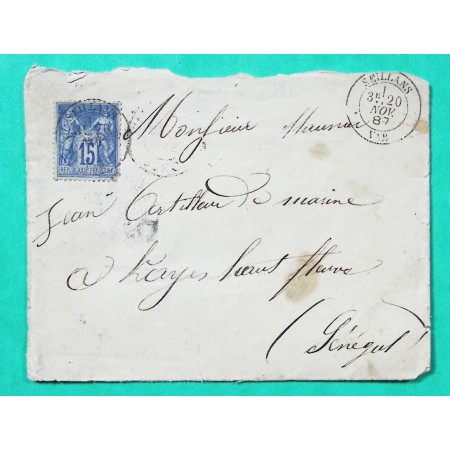 SEILLANS
1
3E/20
NOV
87
VAR
15
Monsieur Maunier
Jean Artilleur de marine
a Kayes haut fleuve
(Sénégal)